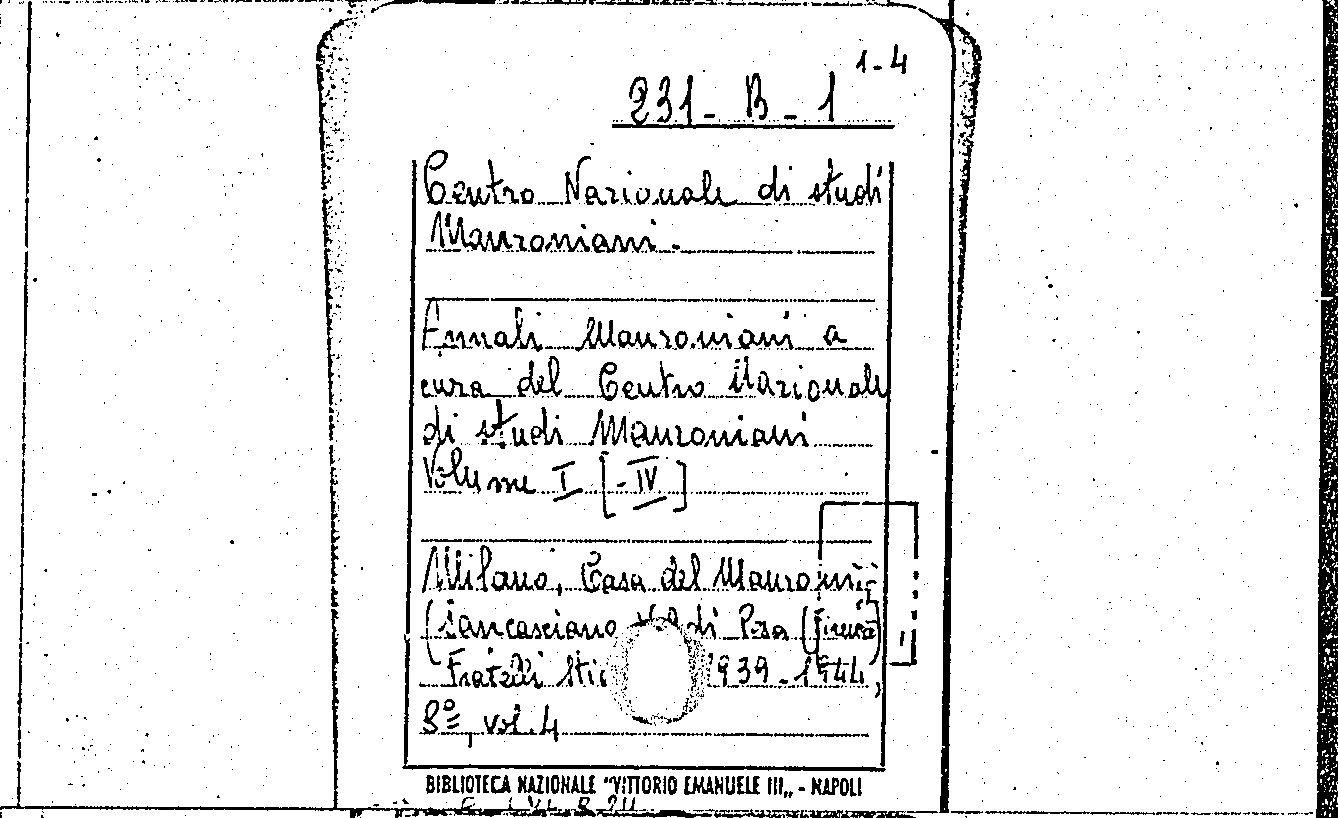 231 - B - 1 1-4
Centro Nazionale di studi
Manzoniani.
Annali Manzoniani a
cura del Centro Nazionale
di studi Manzoniani
Volume I [-IV]
Milano, Casa del Manzoni
(Sancasciano Val di Pesa (Firenze)
Fratelli 1939-1944,
8º, vol. 4
BIBLIOTECA NAZIONALE "VITTORIO EMANUELE III„ - NAPOLI